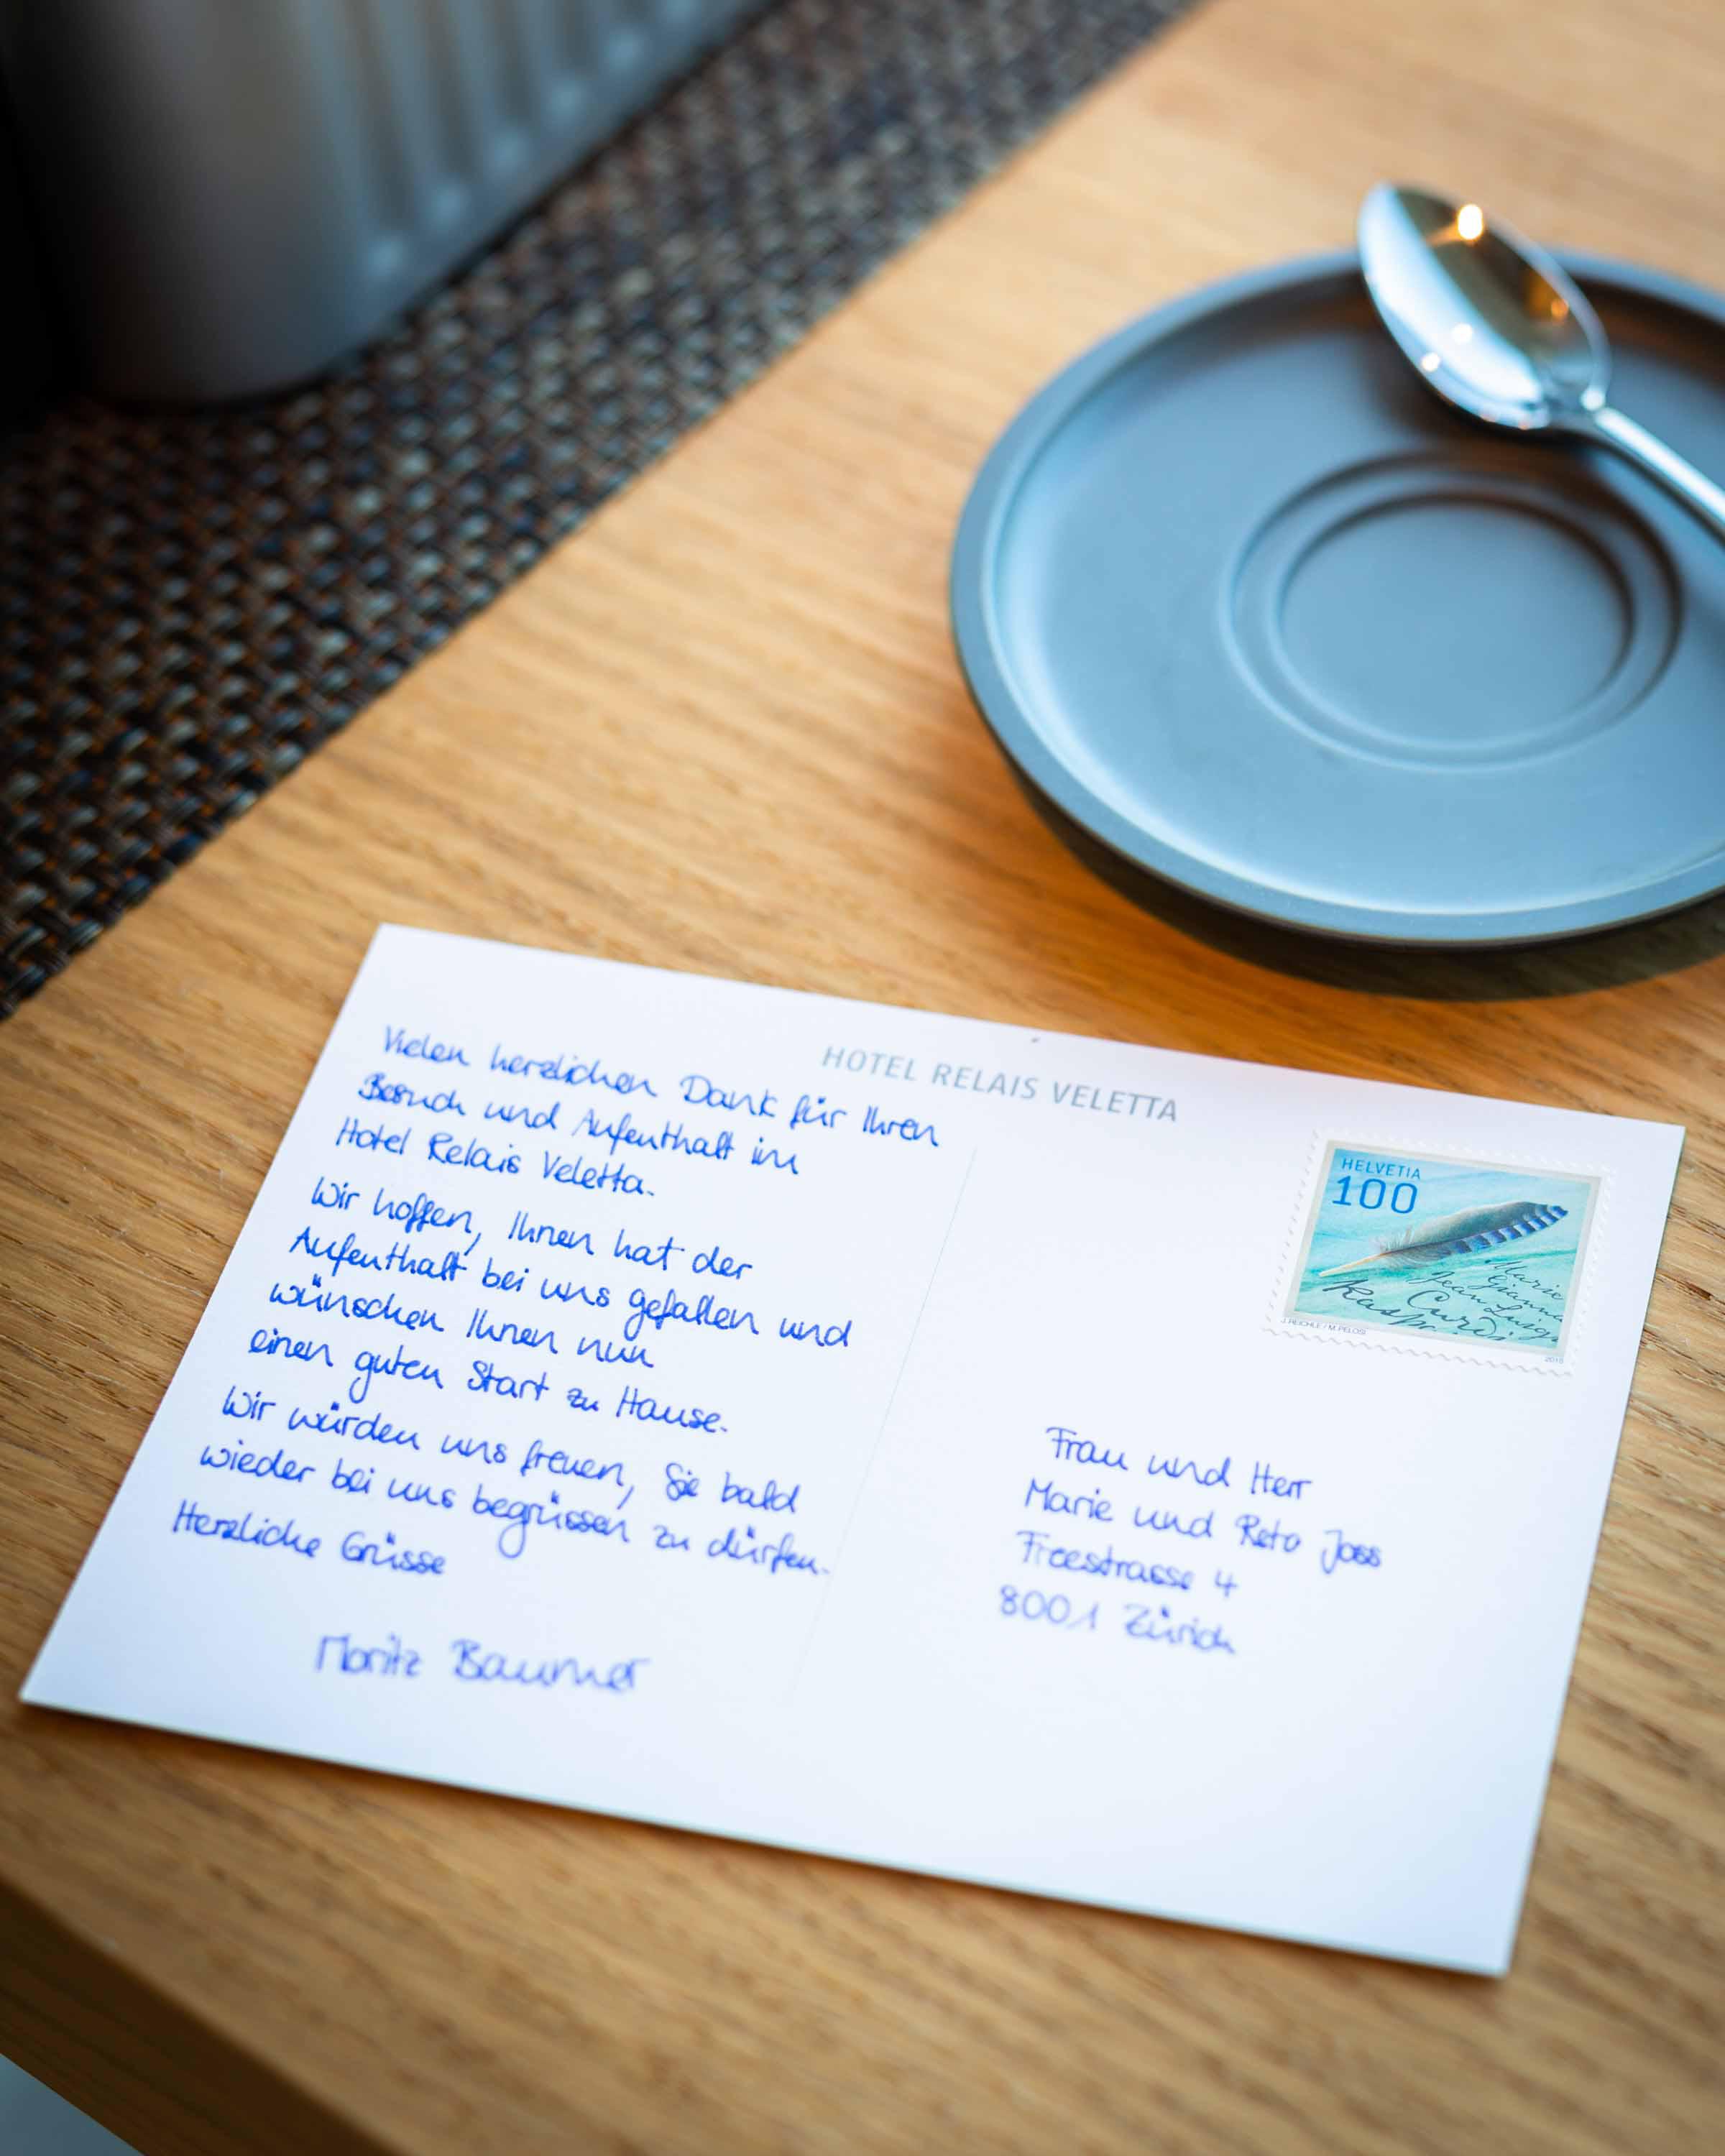 HOTEL RELAIS VELETTA
Vielen herzlichen Dank für Ihren
Besuch und Aufenthalt im
Hotel Relais Veletta.
Wir hoffen, Ihnen hat der
Aufenthalt bei uns gefallen und
wünschen Ihnen nun
einen guten Start zu Hause.
Wir würden uns freuen, Sie bald
wieder bei uns begrüssen zu dürfen.
Herzliche Grüsse
Moritz Baumer
HELVETIA
100
Marie
Gianna
Jean Luigi
Curdi
Kaspr
J. REICHLE / M. PELOSI
Frau und Herr
Marie und Reto Joss
Freestrasse 4
8001 Zürich